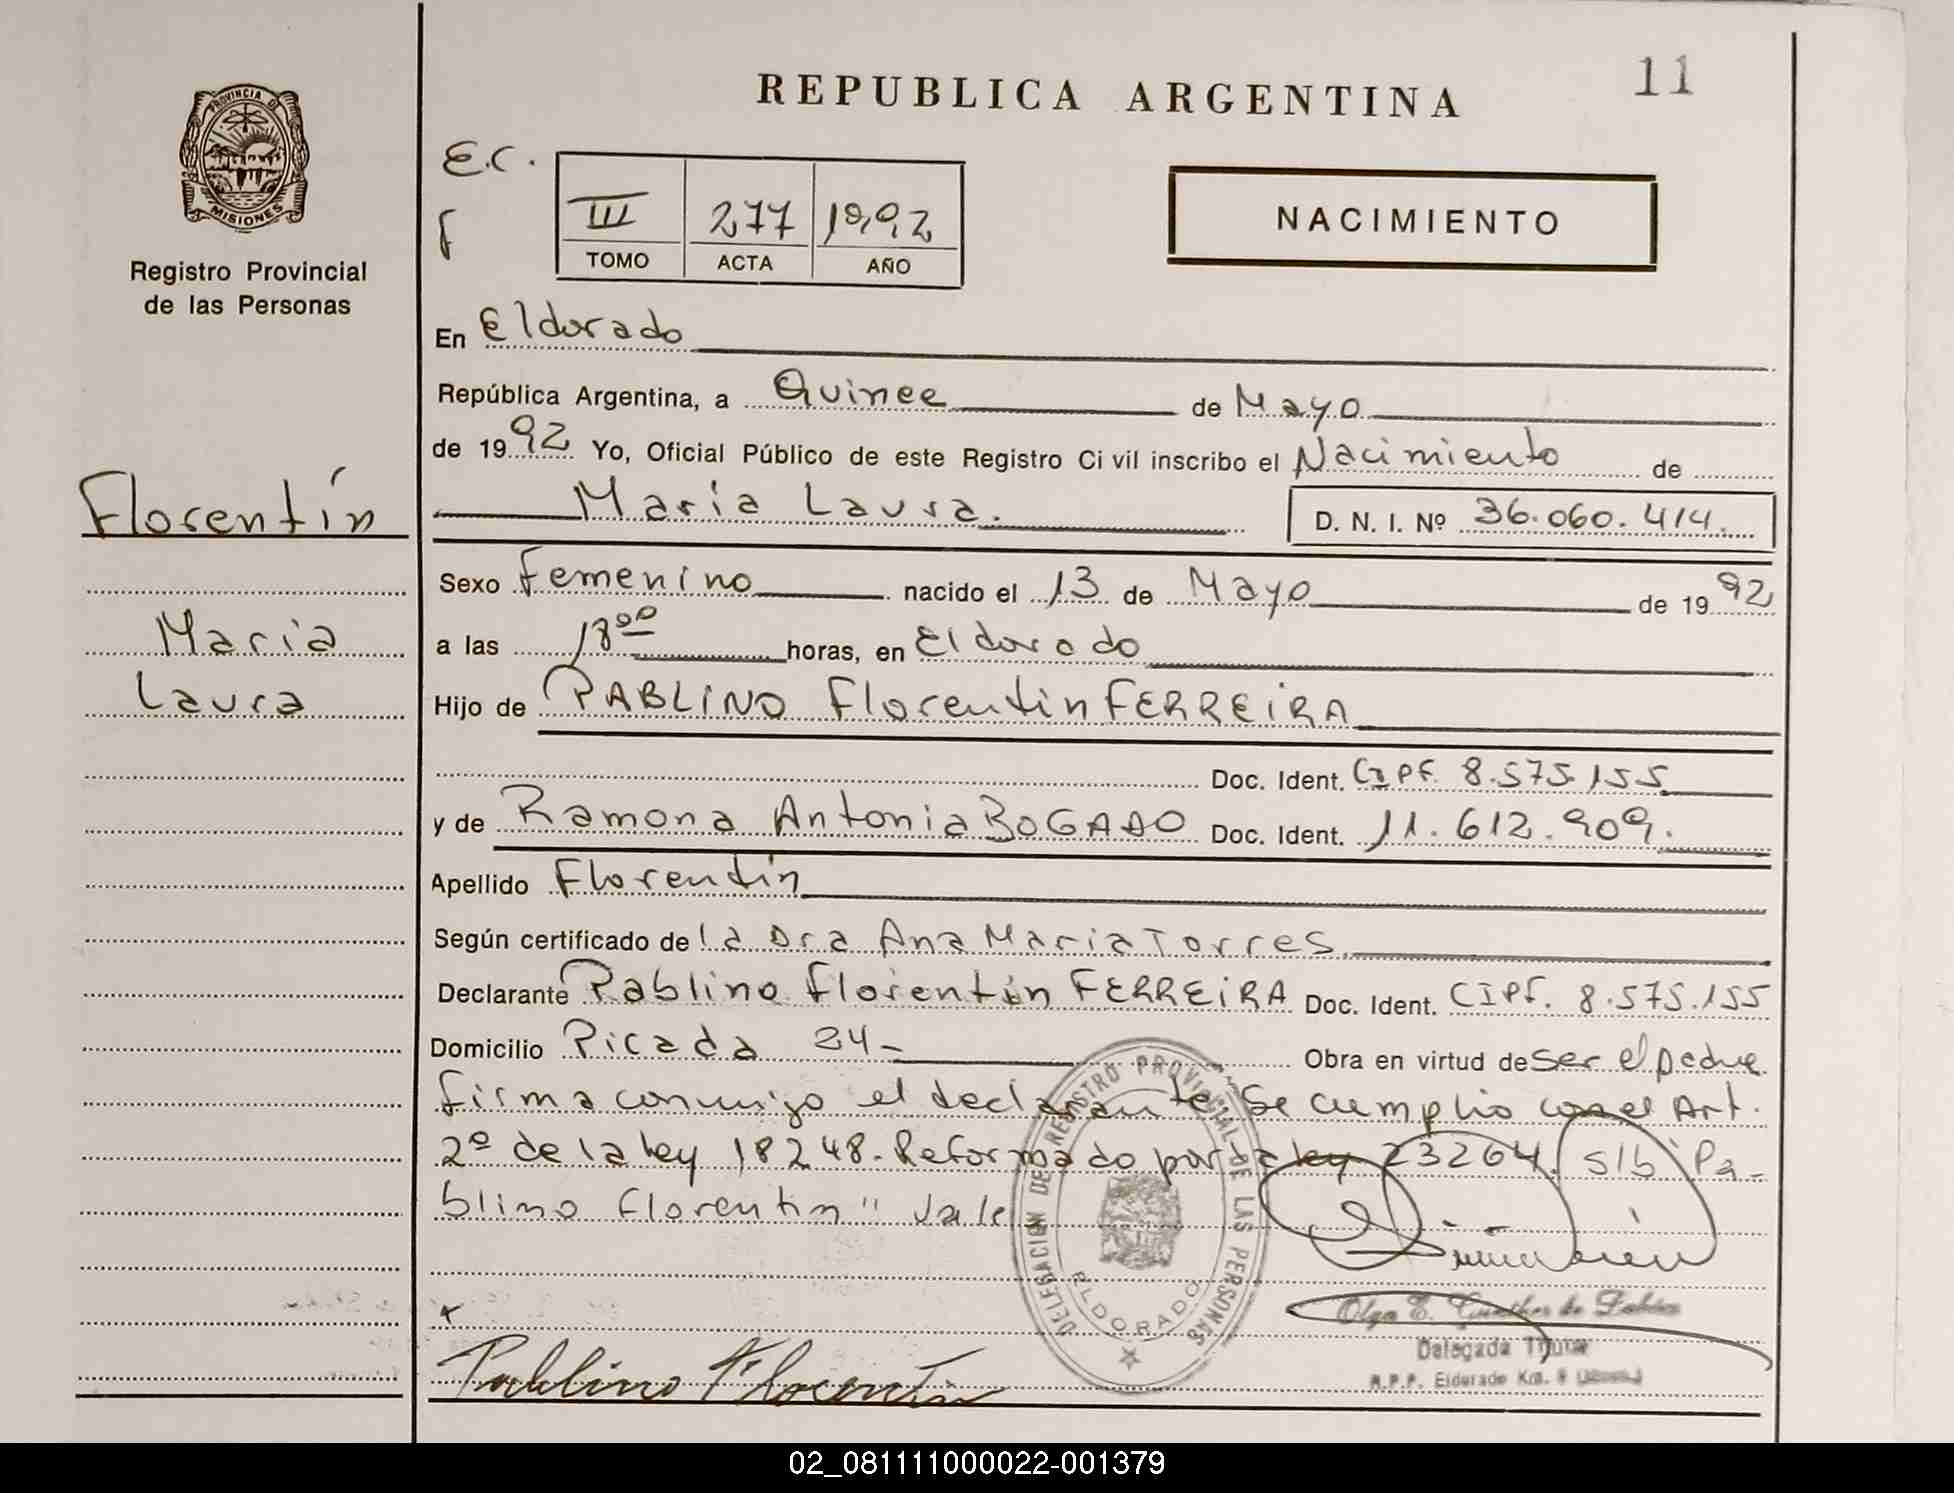 REPUBLICA ARGENTINA
11
PROVINCIA DE
MISIONES
Registro Provincial
de las Personas
E.C.
III 277 1992
TOMO ACTA AÑO
NACIMIENTO
En Eldorado
República Argentina, a Quince de Mayo
de 1992 Yo, Oficial Público de este Registro Civil inscribo el Nacimiento de
Florentín
Maria Laura.
D. N. I. Nº 36.060.414.
Sexo Femenino nacido el 13 de Mayo de 1992
Maria
a las 18⁰⁰ horas, en Eldorado
Laura
Hijo de PABLINO Florentin FERREIRA
Doc. Ident. CIPF. 8.575.155
y de Ramona Antonia BOGADO Doc. Ident. 11.612.909.
Apellido Florentín
Según certificado de la Dra Ana Maria Torres
Declarante Pablino Florentín FERREIRA Doc. Ident. CIPF. 8.575.155
Domicilio Picada 24- Obra en virtud de ser el padre
firma conmigo el declarante Se cumplio con el Art.
2º de la ley 18248. Reformado por la ley 23264. s/b "Pa-
blino Florentin" Vale
DELEGACION DE REGISTRO PROVINCIAL DE LAS PERSONAS
ELDORADO
Olga E. Gunther de
Delegada Titular
R.P.P. Eldorado Km. 9
Pablino Florentín
02_081111000022-001379